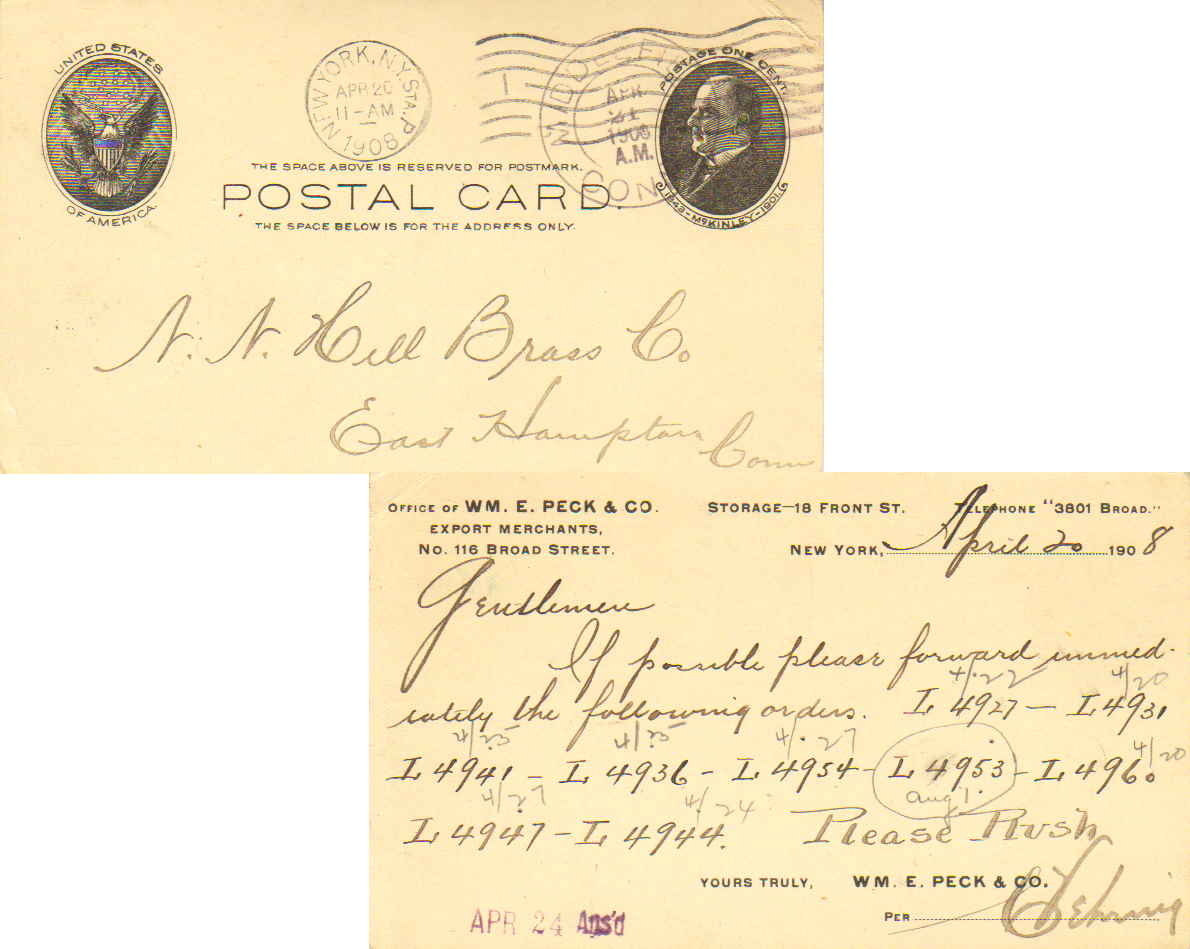 UNITED STATES
OF AMERICA.
NEW YORK, N.Y. STA. P
APR 20
11-AM
1908
APR
21
1908
A.M.
CON
POSTAGE ONE CENT
1843-McKINLEY-1901
THE SPACE ABOVE IS RESERVED FOR POSTMARK.
POSTAL CARD.
THE SPACE BELOW IS FOR THE ADDRESS ONLY.
N. N. Hill Brass Co
East Hampton
Conn
OFFICE OF WM. E. PECK & CO. STORAGE—18 FRONT ST. TELEPHONE "3801 BROAD."
EXPORT MERCHANTS,
NO. 116 BROAD STREET. NEW YORK, April 20 1908
Gentlemen
If possible please forward immed-
4/22 4/20
iately the following orders. L 4927 – L 4931
4/25 4/25 4/27 4/20
L 4941 – L 4936 – L 4954 – L 4953 – L 4960
aug 1.
4/27 4/24
L 4947 – L 4944. Please Rush
YOURS TRULY, WM. E. PECK & CO.
PER
APR 24 Ans'd